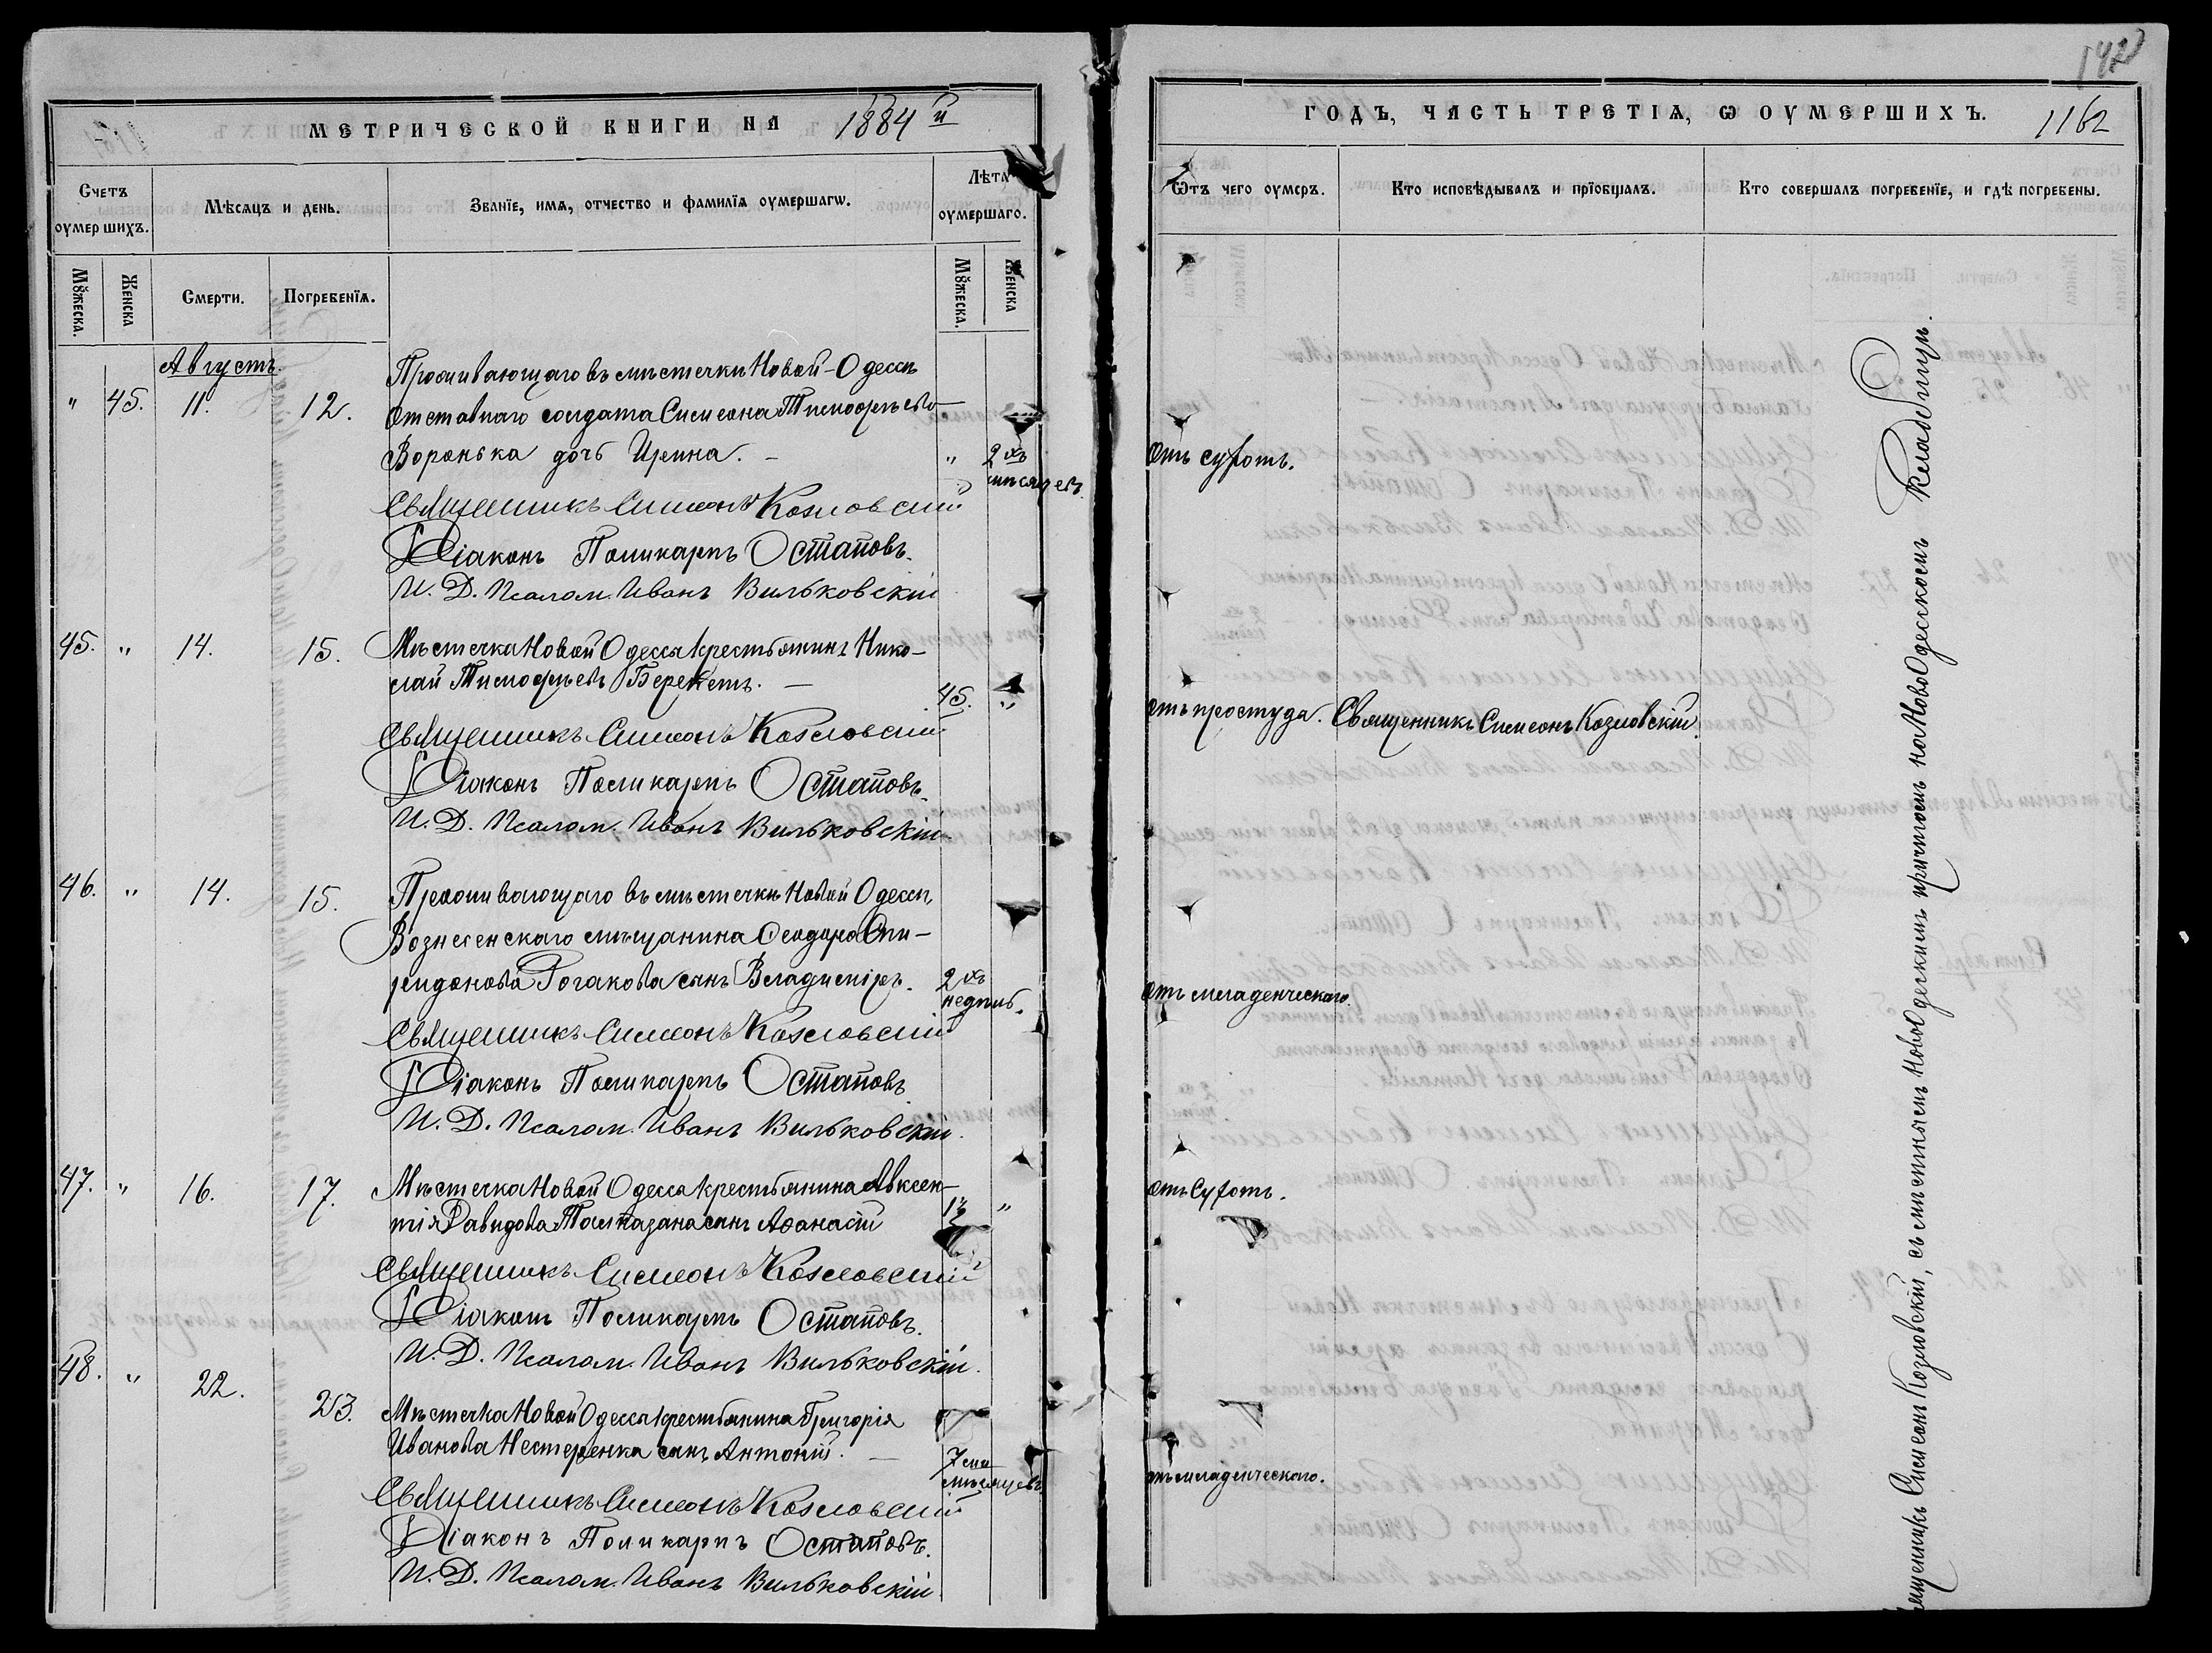 МЕТРИЧЕСКОЙ КНИГИ НА 1884й
Счетъ оумершихъ.
Мѣсяцъ и день.
Званїе, имя, отчество и фамилїя оумершагѡ.
Лѣта оумершаго.
Мꙋжеска.
Женска
Смерти.
Погребенїя.
Мꙋжеска.
Женска
Августъ.
" 45. 11. 12.
Проживающаго въ мѣстечкѣ Новой-Одессѣ
отставнаго солдата Симеона Тимофѣева
Воронька дочь Ирина. — " 2хъ мѣсяцевъ.
Священникъ Симеонъ Козловскій
Діаконъ Поликарпъ Остаповъ.
И. Д. Псалом. Иванъ Вильковскій
45. " 14. 15.
Мѣстечка Новой Одесса крестьянинъ Нико-
лай Тимофѣевъ Берекетъ. — 45. "
Священникъ Симеонъ Козловскій
Діаконъ Поликарпъ Остаповъ.
И. Д. Псалом. Иванъ Вильковскій
46. " 14. 15.
Проживающаго въ мѣстечкѣ Новой Одессѣ,
Вознесенскаго мѣщанина Ѳеодора Спи-
ридонова Рогакова сынъ Владиміръ. 2хъ недѣль.
Священникъ Симеонъ Козловскій
Діаконъ Поликарпъ Остаповъ
И. Д. Псалом. Иванъ Вильковскій.
47. " 16. 17.
Мѣстечка Новой Одесса крестьянина Авксен-
тія Давидова сынъ Аѳанасій "
Священникъ Симеонъ Козловскій
Діаконъ Поликарпъ Остаповъ.
И. Д. Псалом. Иванъ Вильковскій.
48. " 22. 23.
Мѣстечка Новой Одесса крестьянина Григорія
Иванова Нестеренка сынъ Антоній. — 7ми мѣсяцевъ.
Священникъ Симеонъ Козловскій
Діаконъ Поликарпъ Остаповъ.
И. Д. Псалом. Иванъ Вильковскій
142
ГОДЪ, ЧАСТЬ ТРЕТІЯ, Ѡ ОУМЕРШИХЪ. 1162
Ѿтъ чего оумеръ.
Кто исповѣдывалъ и прїобщалъ.
Кто совершалъ погребенїе, и гдѣ погребены.
отъ сухотъ.
отъ простуда. Священникъ Симеонъ Козловскій.
отъ младенческаго.
отъ Сухотъ.
отъ младенческаго.
Священникъ Симеонъ Козловскій, съ мѣстнымъ Новоодесскимъ причтомъ на Новоодесскомъ кладбищѣ.